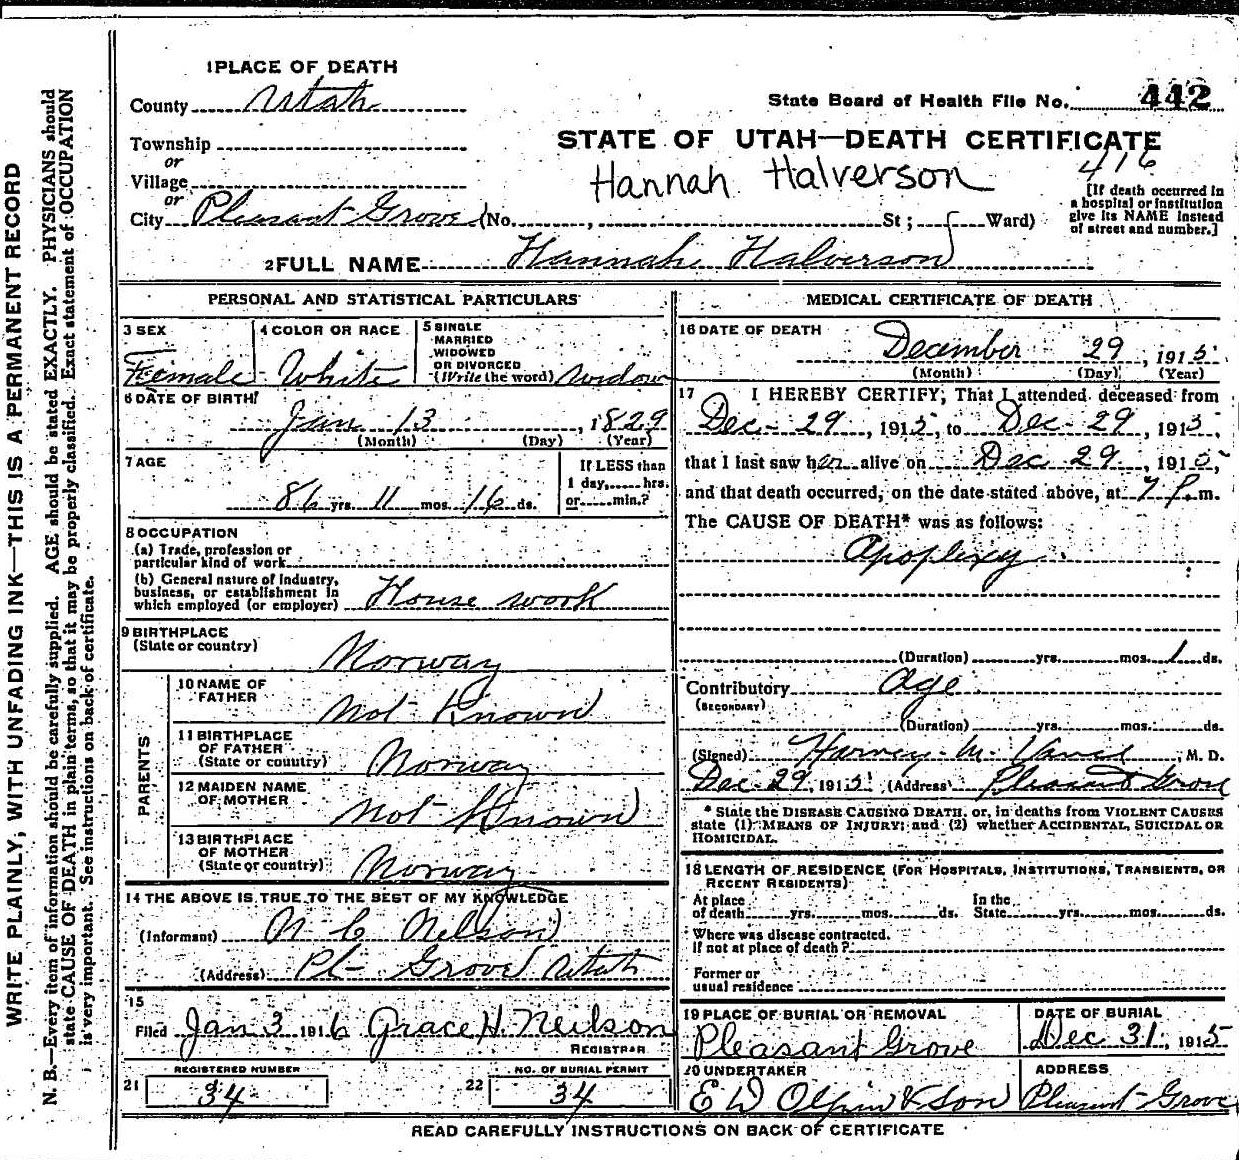 WRITE PLAINLY, WITH UNFADING INK—THIS IS A PERMANENT RECORD
N. B.—Every item of information should be carefully supplied. AGE should be stated EXACTLY. PHYSICIANS should
state CAUSE OF DEATH in plain terms, so that it may be properly classified. Exact statement of OCCUPATION
is very important. See instructions on back of certificate.
1 PLACE OF DEATH
County Utah
State Board of Health File No. 442
Township
or
Village
or
City Pleasant Grove (No. , St ; Ward)
STATE OF UTAH—DEATH CERTIFICATE
416
Hannah Halverson
[If death occurred in
a hospital or institution
give its NAME instead
of street and number.]
2 FULL NAME Hannah Halverson
PERSONAL AND STATISTICAL PARTICULARS
3 SEX
Female
4 COLOR OR RACE
White
5 SINGLE
MARRIED
WIDOWED
OR DIVORCED
(Write the word) Widow
6 DATE OF BIRTH
Jan 13, 1829
(Month) (Day) (Year)
7 AGE
86 yrs 11 mos 16 ds.
If LESS than
1 day, hrs.
or min.?
8 OCCUPATION
(a) Trade, profession or
particular kind of work
(b) General nature of industry,
business, or establishment in
which employed (or employer) House work
9 BIRTHPLACE
(State or country)
Norway
PARENTS
10 NAME OF
FATHER
Not Known
11 BIRTHPLACE
OF FATHER
(State or country) Norway
12 MAIDEN NAME
OF MOTHER
Not Known
13 BIRTHPLACE
OF MOTHER
(State or country) Norway
14 THE ABOVE IS TRUE TO THE BEST OF MY KNOWLEDGE
(Informant) N C Nelson
(Address) Pl- Grove Utah
15
Filed Jan 3 1916 Grace H. Neilson
REGISTRAR
REGISTERED NUMBER
21 34
NO. OF BURIAL PERMIT
22 34
MEDICAL CERTIFICATE OF DEATH
16 DATE OF DEATH
December 29, 1915
(Month) (Day) (Year)
17 I HEREBY CERTIFY, That I attended deceased from
Dec- 29, 1915, to Dec- 29, 1915,
that I last saw her alive on Dec 29, 1915,
and that death occurred, on the date stated above, at 7 P. m.
The CAUSE OF DEATH* was as follows:
Apoplexy
(Duration) yrs. mos. 1 ds.
Contributory Age
(SECONDARY)
(Duration) yrs. mos. ds.
(Signed) Harvey M. , M. D.
Dec 29, 1915 (Address) Pleasant Grove
* State the DISEASE CAUSING DEATH, or, in deaths from VIOLENT CAUSES
state (1) MEANS OF INJURY; and (2) whether ACCIDENTAL, SUICIDAL OR
HOMICIDAL.
18 LENGTH OF RESIDENCE (FOR HOSPITALS, INSTITUTIONS, TRANSIENTS, OR
RECENT RESIDENTS)
At place In the
of death yrs. mos. ds. State yrs. mos. ds.
Where was disease contracted,
if not at place of death?
Former or
usual residence
19 PLACE OF BURIAL OR REMOVAL
Pleasant Grove
DATE OF BURIAL
Dec 31, 1915
20 UNDERTAKER
E D Olpin & Son
ADDRESS
Pleasant Grove
READ CAREFULLY INSTRUCTIONS ON BACK OF CERTIFICATE